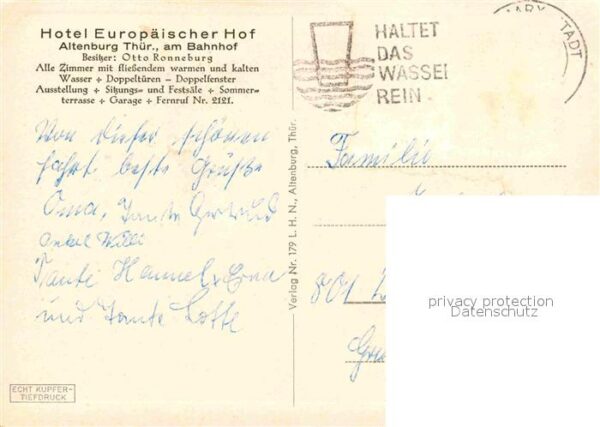 Hotel Europäischer Hof
Altenburg Thür., am Bahnhof
Besitzer: Otto Ronneburg
Alle Zimmer mit fließendem warmen und kalten
Wasser + Doppeltüren – Doppelfenster
Ausstellung + Sitzungs- und Festsäle + Sommer-
terrasse + Garage + Fernruf Nr. 2121.
HALTET
DAS
WASSER
REIN
STADT
Von dieser schönen
fahrt beste Grüße
Oma, Tante Gertrud
Onkel Willi
Tante Hannel + Erna
und Tante Lotte
Verlag Nr. 179 L. H. N., Altenburg, Thür.
Familie
801
privacy protection
Datenschutz
ECHT KUPFER-
TIEFDRUCK